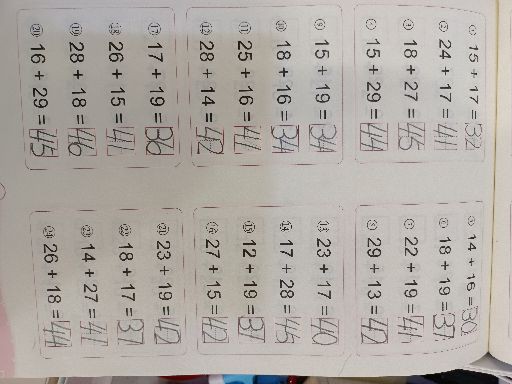 ① 15 + 17 = 32
② 24 + 17 = 41
③ 18 + 27 = 45
④ 15 + 29 = 44
⑤ 14 + 16 = 30
⑥ 18 + 19 = 37
⑦ 22 + 19 = 41
⑧ 29 + 13 = 42
⑨ 15 + 19 = 34
⑩ 18 + 16 = 34
⑪ 25 + 16 = 41
⑫ 28 + 14 = 42
⑬ 23 + 17 = 40
⑭ 17 + 28 = 45
⑮ 12 + 19 = 31
⑯ 27 + 15 = 42
⑰ 17 + 19 = 36
⑱ 26 + 15 = 41
⑲ 28 + 18 = 46
⑳ 16 + 29 = 45
㉑ 23 + 19 = 42
㉒ 18 + 17 = 37
㉓ 14 + 27 = 41
㉔ 26 + 18 = 44